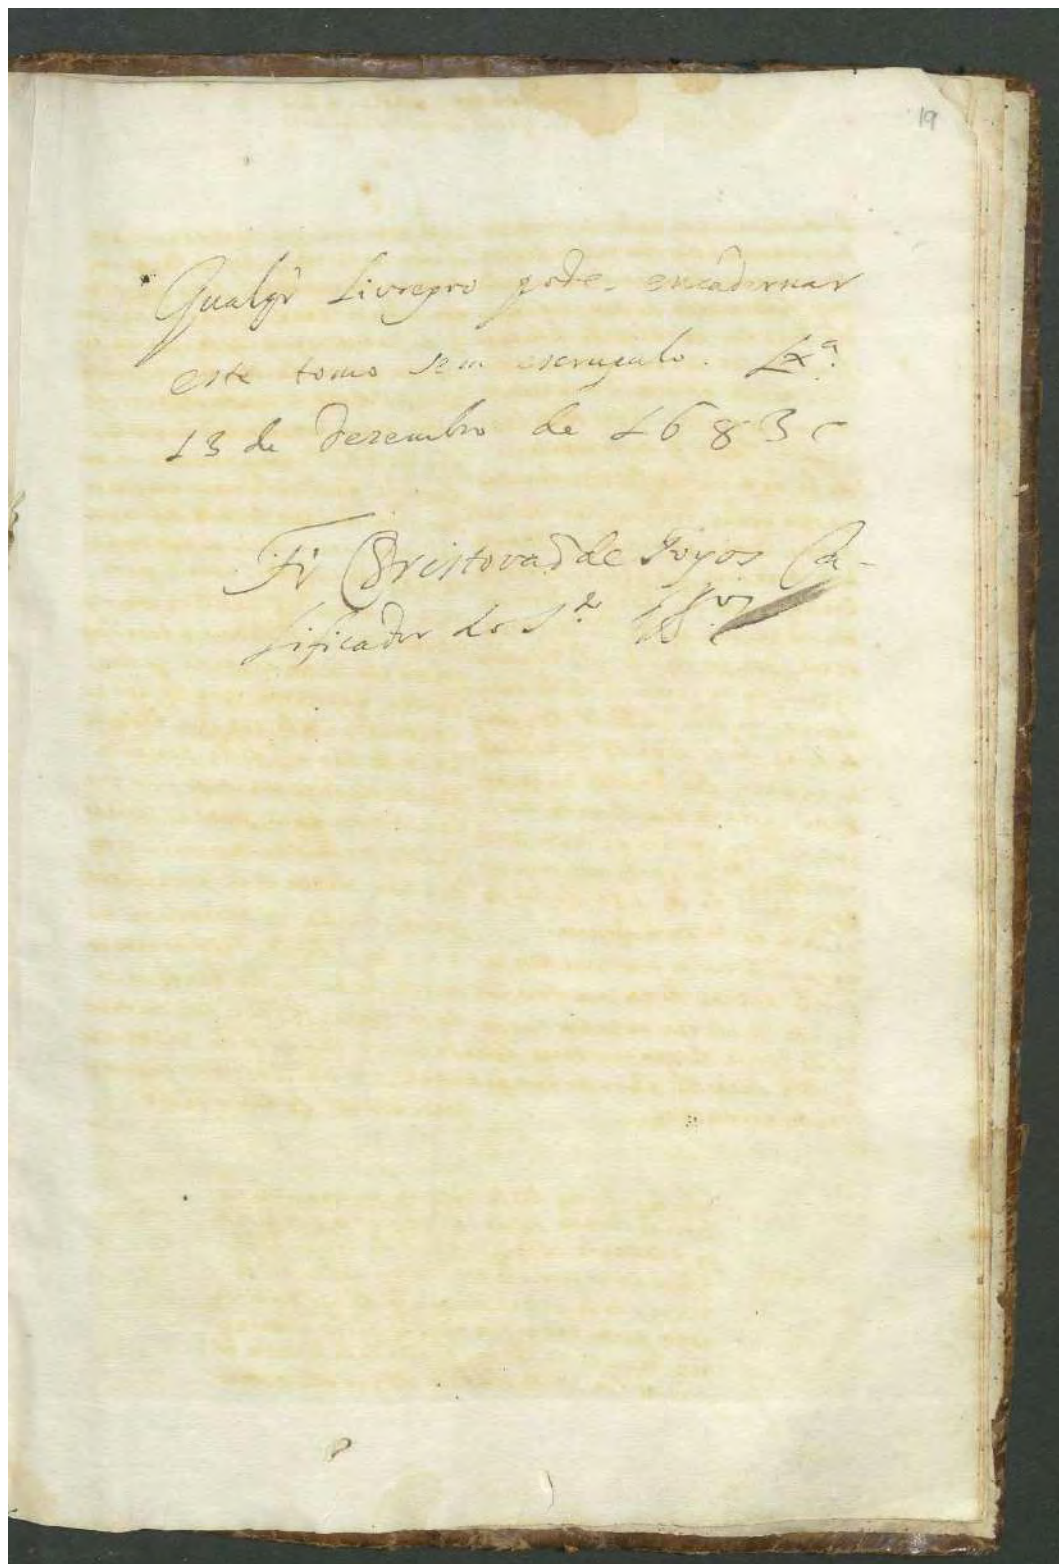 19
Qualqr Livreyro pode encadernar
este tomo sem escrupulo. Lxª.
13 de Dezembro de 1683
Fr Christovaõ de Foyos Ca-
lificador do Sto.